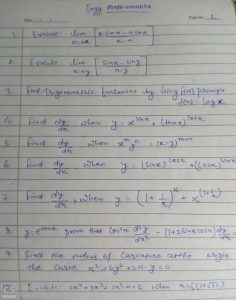 Engg Mathematics
Page No.: 1
1 Evaluate lim x→α [x sin α - α sin x / x - α]
2 Evaluate lim x→y [sin x - sin y / x - y]
3 find Trigonometric functions by using first principle
f(x) = log x
4 find dy/dx when y = x^sinx + (tan x)^tanx
5 find dy/dx when x^m y^n = (x-y)^m+n
6 find dy/dx when y = (sin x)^cosx + (cos x)^sinx
7 find dy/dx, when y = (1 + 1/x)^x + x^(1+1/x)
8 y = e^tanx prove that cos²x d²y/dx² - (1+2 sin x cos x) dy/dx =
9 find the radius of curvature at the origin
the curve
Evaluate 2x⁴+